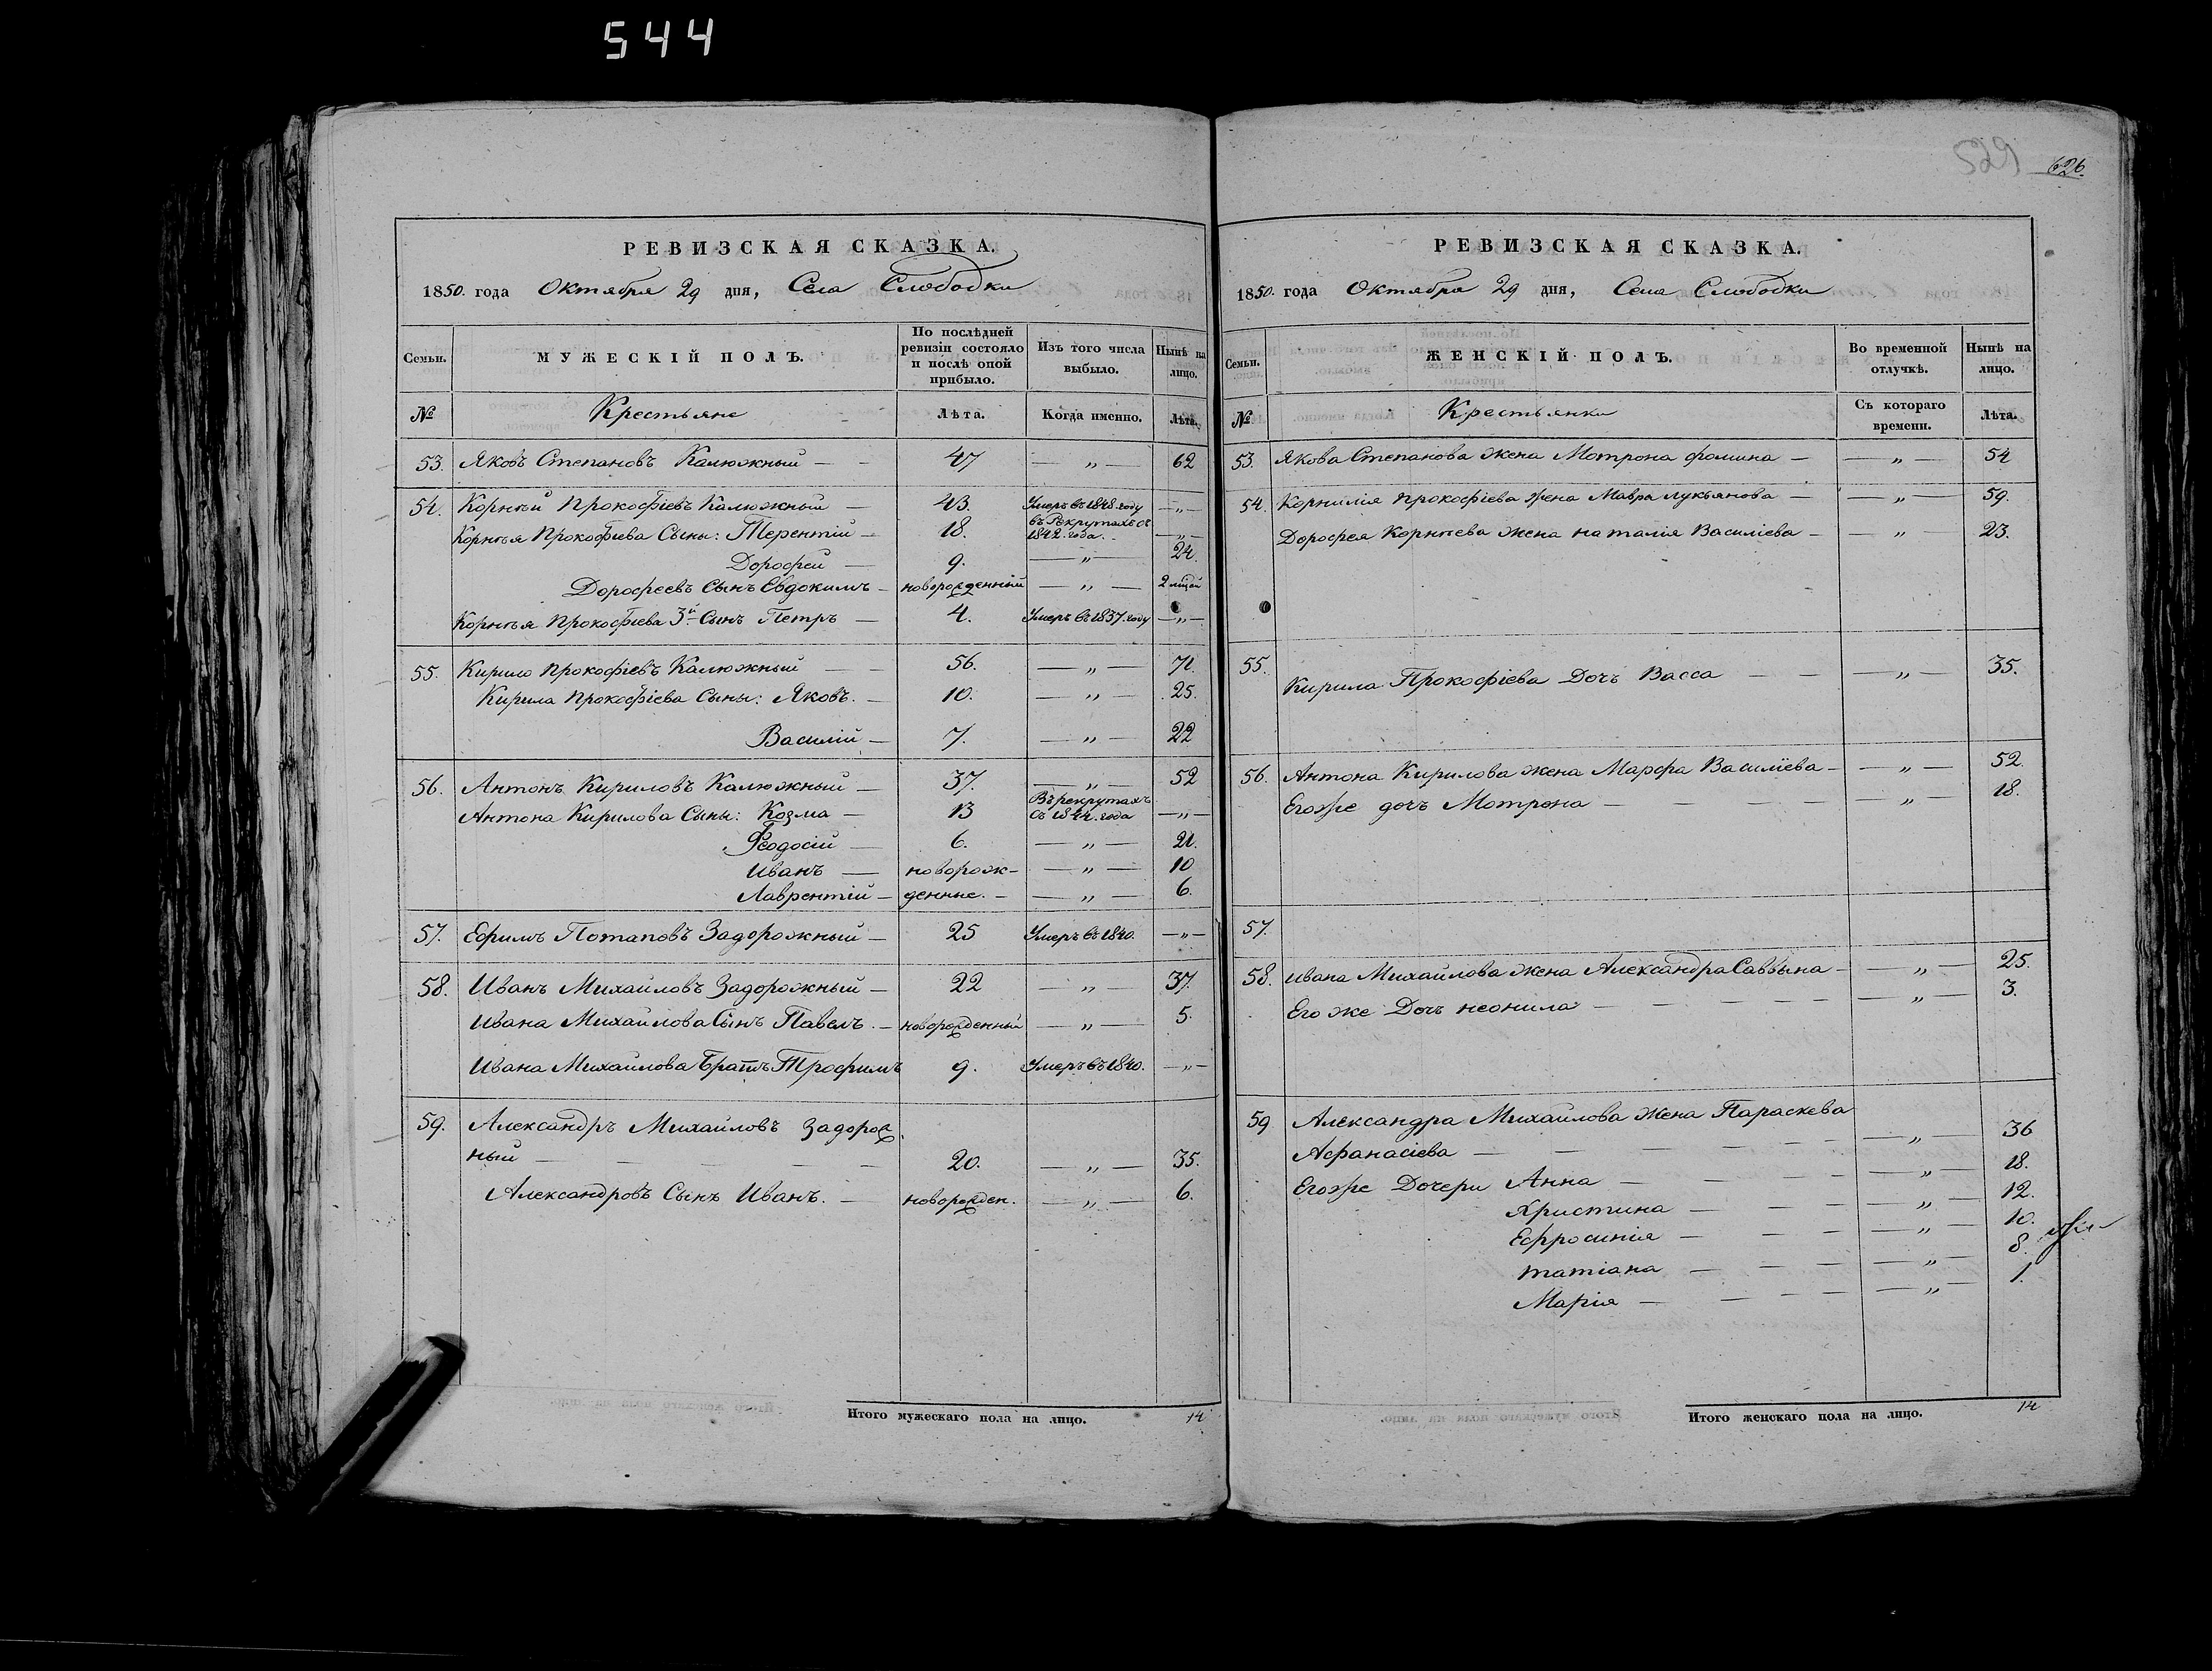 544
529 626.
РЕВИЗСКАЯ СКАЗКА.
1850. года Октября 29 дня, Села Слободки
Семьи. МУЖЕСКІЙ ПОЛЪ. По послѣдней ревизіи состояло и послѣ оной прибыло. Изъ того числа выбыло. Нынѣ на лицо.
№ Крестьяне Лѣта. Когда именно. Лѣта.
53. Яковъ Степановъ Калюжный — 47 — „ — 62
54. Корнѣй Прокофіевъ Калюжный — 43. Умеръ въ 1848. году — „ —
Корнѣя Прокофіева Сыны: Терентій — 18. въ Рекрутахъ съ 1842. года. — „ —
Дорофей — 9. — „ — 24
Дорофеевъ Сынъ Евдокимъ — новорожденній — „ — 2
Корнѣя Прокофіева 3й Сынъ Петръ — 4. Умеръ въ 1837. году — „ —
55. Кирило Прокофіевъ Калюжный — 56. — „ — 71
Кирила Прокофіева Сыны: Яковъ. — 10. — „ — 25.
Василій — 7. — „ — 22
56. Антонъ Кириловъ Калюжный — 37. — „ — 52
Антона Кирилова Сыны: Козма — 13 Въ рекрутахъ съ 1844. года — „ —
Феодосій — 6. — „ — 21.
Иванъ — новорож- — „ — 10
Лаврентій — денные. — „ — 6.
57. Ефимъ Потаповъ Задорожный — 25 Умеръ въ 1840. — „ —
58. Иванъ Михайловъ Задорожный — 22 — „ — 37.
Ивана Михайлова Сынъ Павелъ. — новорожденный — „ — 5.
Ивана Михайлова Братъ Трофимъ 9. Умеръ въ 1840. — „ —
59. Александръ Михайловъ Задорож
ный — 20. — „ — 35.
Александровъ Сынъ Иванъ. — новорожден. — „ — 6.
Итого мужескаго пола на лицо. 14
РЕВИЗСКАЯ СКАЗКА.
1850. года Октября 29 дня, Села Слободки
Семьи. ЖЕНСКІЙ ПОЛЪ. Во временной отлучкѣ. Нынѣ на лицо.
№ Крестьянки Съ котораго времени. Лѣта.
53. Якова Степанова жена Мотрона Фомина — — „ — 54
54. Корнилія Прокофіева жена Мавра Лукьянова — — „ — 59.
Дорофея Корнѣева жена Наталія Василіева — — „ — 23.
55. Кирила Прокофіева Дочъ Васса — — „ — 35.
56. Антона Кирилова жена Марфа Василіева — — „ — 52.
Егоже дочъ Мотрона — — „ — 18.
57.
58. Ивана Михайлова жена Александра Саввына — — „ — 25.
Его же Дочъ Неонила — — „ — 3.
59 Александра Михайлова жена Параскева
Афанасіева — — „ — 36
Егоже Дочери Анна — — „ — 18.
Христина — — „ — 12.
Ефросинія — — „ — 10.
Татіана — — „ — 8.
Марія — — „ — 1.
Итого женскаго пола на лицо. 14